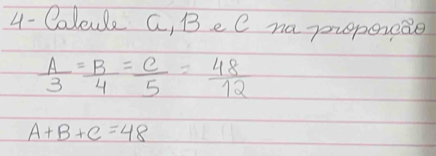 4- Calcule A, B e C na proporção
A/3 = B/4 = C/5 = 48/12
A+B+C=48